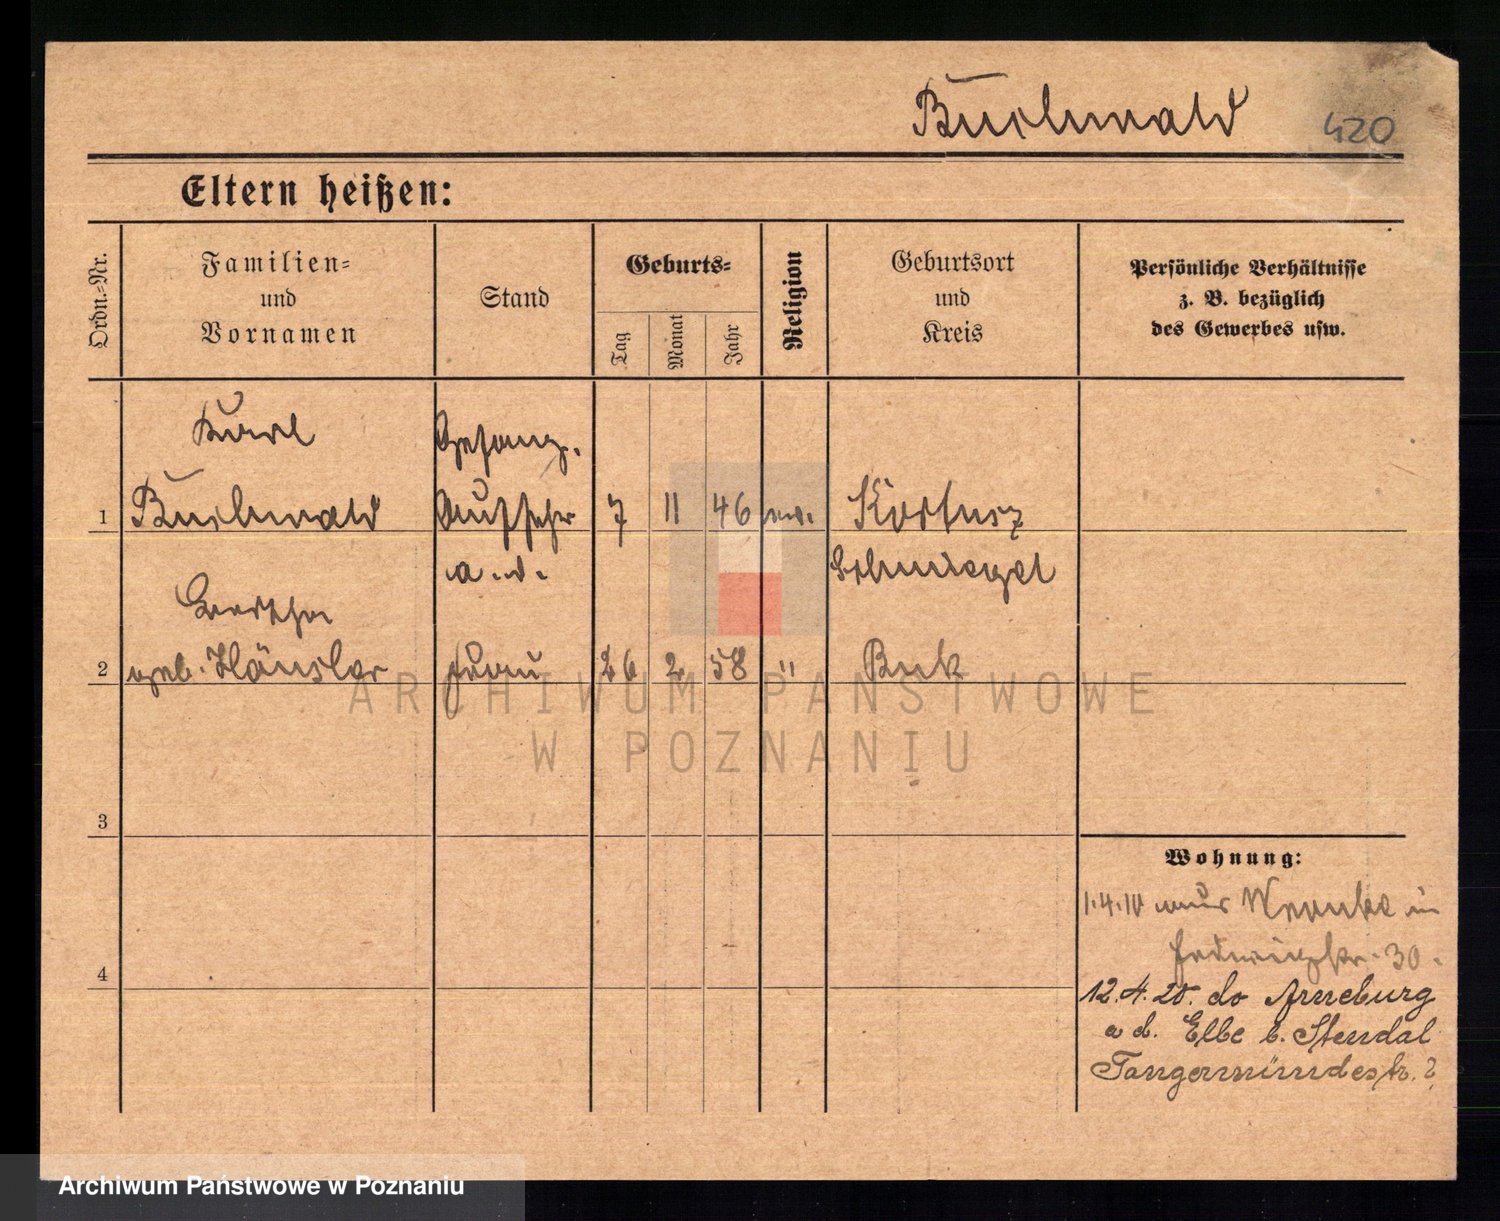 Buchwald 420
Eltern heißen:
Ordn.=Nr.
Familien=
und
Vornamen
Stand
Geburts=
Tag
Monat
Jahr
Religion
Geburtsort
und
Kreis
Persönliche Verhältnisse
z. B. bezüglich
des Gewerbes usw.
Karl Gefang.
1 Buchwald Aufseher 7 11 46 ev.
a. D. Schmiegel
Bertha
2 geb. Hänsler Frau 26 2 58 " Buk
3
4
Wohnung:
1.4.10 nach Wronke in
Hedwigstr. 30.
12.4.20. do Arneburg
a d. Elbe b. Stendal
Tangermündestr. 2
ARCHIWUM PAŃSTWOWE
W POZNANIU
Archiwum Państwowe w Poznaniu